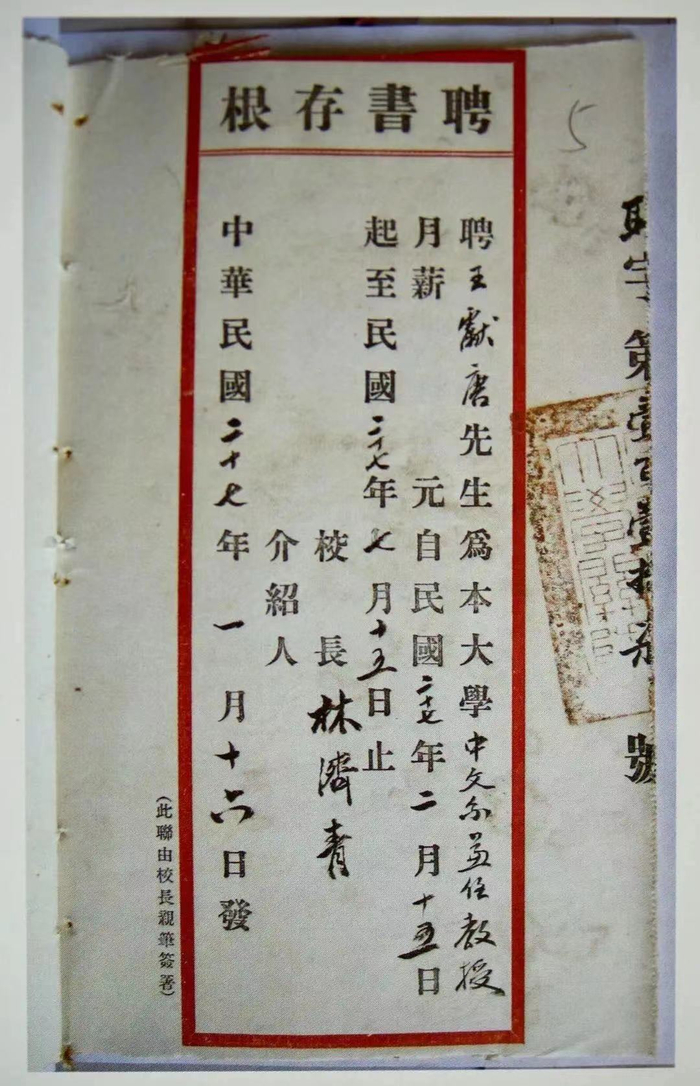 5
字第壹百壹拾號
聘書存根
聘王獻唐先生爲本大學中文系兼任教授
月薪 元自民國二十七年二月十五日
起至民國二十七年七月十五日止
校長林濟青
介紹人
中華民國二十七年一月十六日發
(此聯由校長親筆簽署)